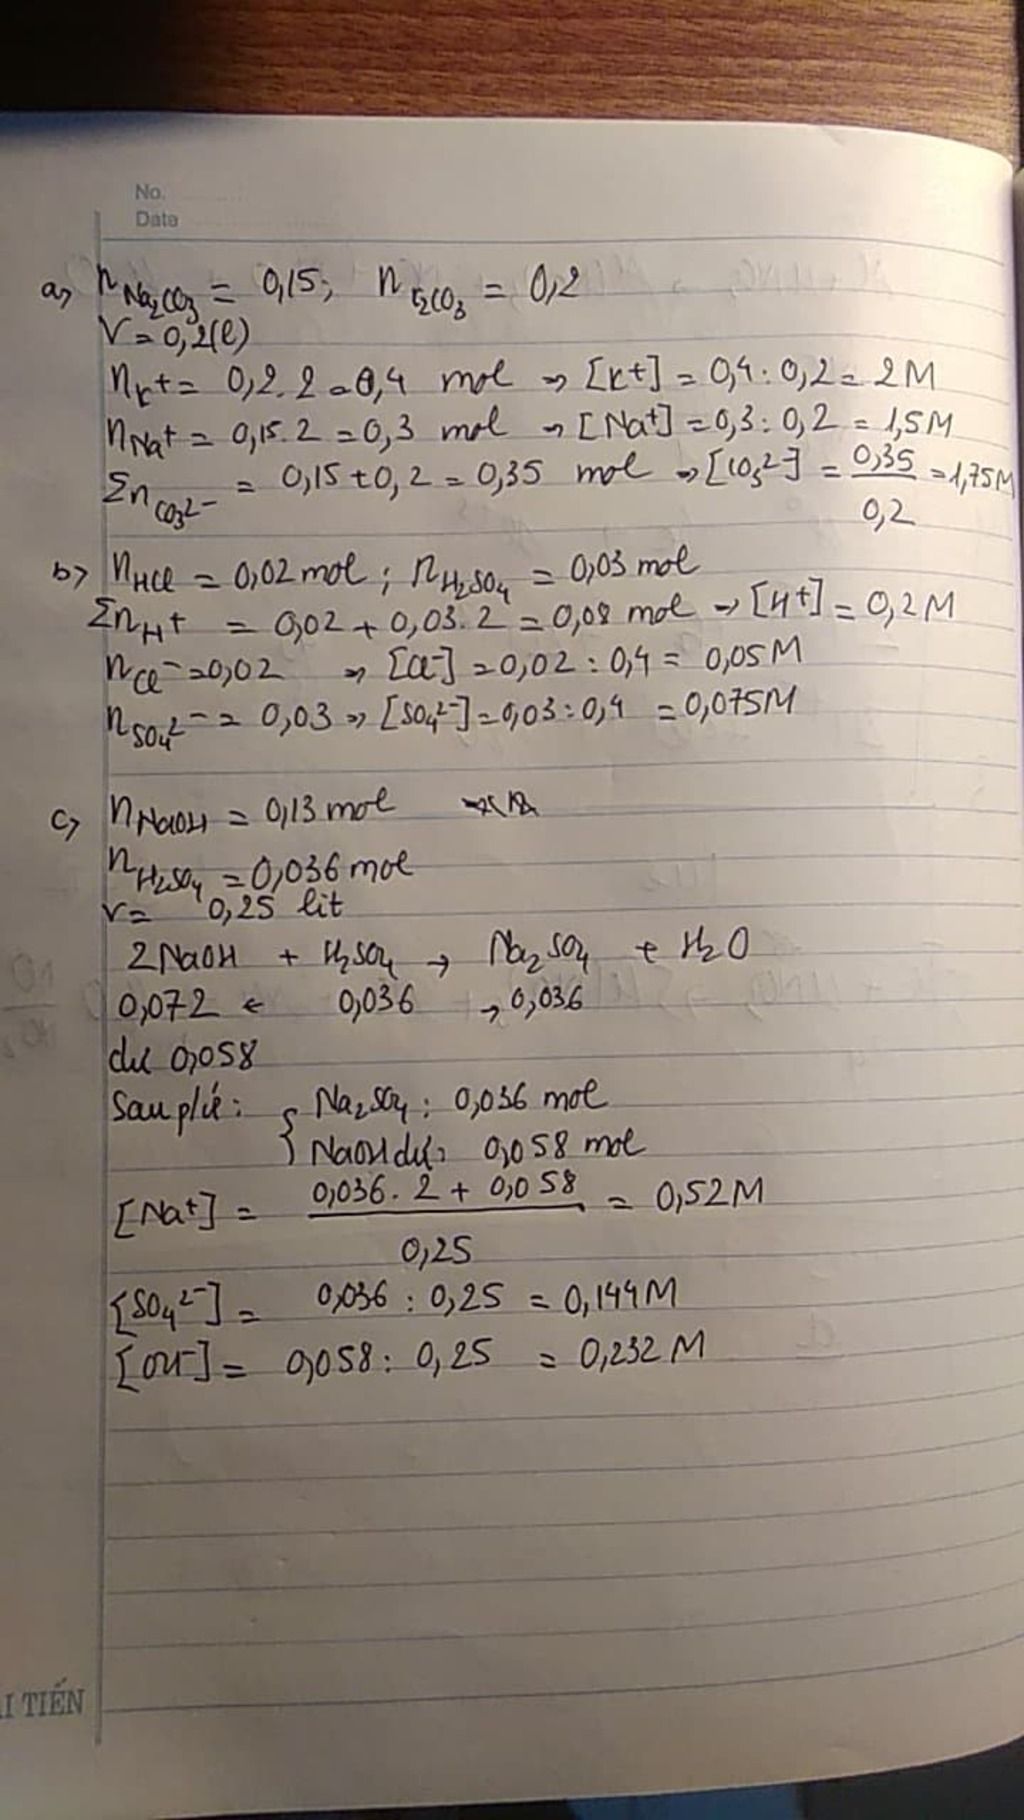 No.
Date
a) nNa₂CO₃ = 0,15; nK₂CO₃ = 0,2
V = 0,2(l)
nK+ = 0,2.2 = 0,4 mol → [K+] = 0,4 : 0,2 = 2M
nNa+ = 0,15.2 = 0,3 mol → [Na+] = 0,3 : 0,2 = 1,5M
ΣnCO₃²⁻ = 0,15 + 0,2 = 0,35 mol → [CO₃²⁻] = 0,35/0,2 = 1,75M
b) nHCl = 0,02 mol ; nH₂SO₄ = 0,03 mol
ΣnH+ = 0,02 + 0,03.2 = 0,08 mol → [H+] = 0,2M
nCl⁻ = 0,02 → [Cl⁻] = 0,02 : 0,4 = 0,05M
nSO₄²⁻ = 0,03 → [SO₄²⁻] = 0,03 : 0,4 = 0,075M
c) nNaOH = 0,13 mol
nH₂SO₄ = 0,036 mol
V = 0,25 lit
2NaOH + H₂SO₄ → Na₂SO₄ + H₂O
0,072 ← 0,036 → 0,036
dư 0,058
Sau p/ứ : { Na₂SO₄ : 0,036 mol
NaOH dư : 0,058 mol
[Na+] = (0,036.2 + 0,058)/0,25 = 0,52M
[SO₄²⁻] = 0,036 : 0,25 = 0,144M
[OH⁻] = 0,058 : 0,25 = 0,232M
TIẾN